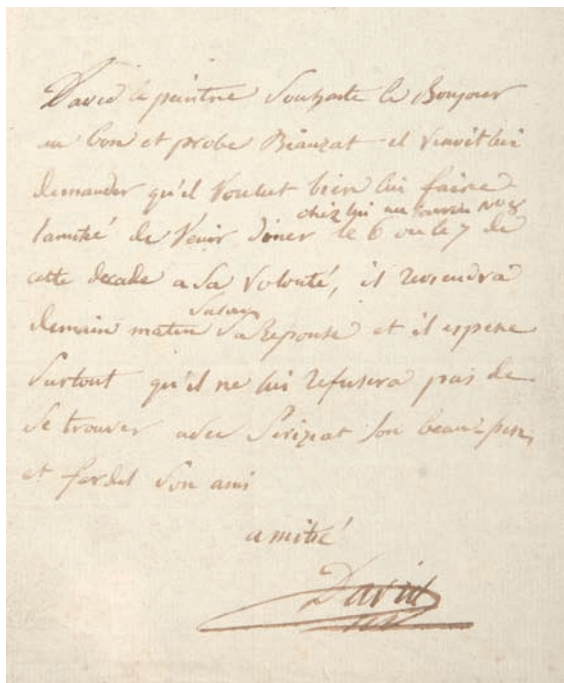 David le peintre Souhaite le Bonjour
au bon et probe Biauzat il venoit lui
demander qu'il voulut bien lui faire
l'amitié de venir diner chez lui au louvre No 8 le 6 ou le 7 de
cette decade a sa volonté, il reviendra
demain matin Savoir Sa Reponse et il espere
Surtout qu'il ne lui refusera pas de
se trouver avec Seriziat son beau-frere,
et son ami
amitié
David